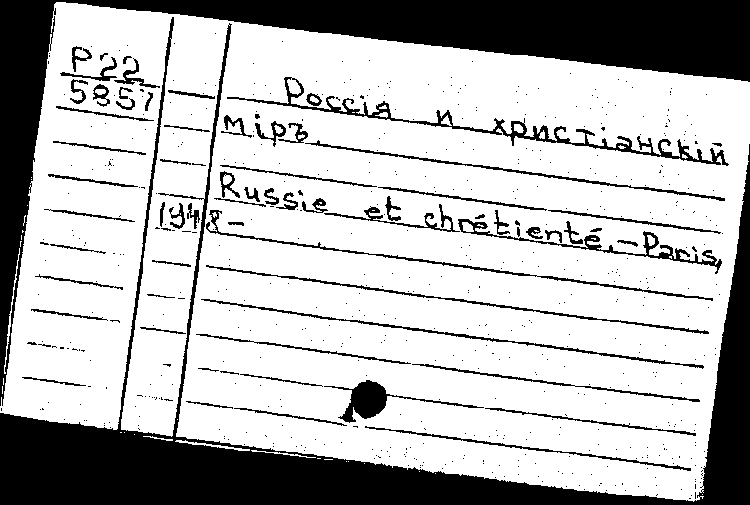 P22
5857
Россія и христіанскій
міръ.
Russie et chrétienté.-Paris,
1948-